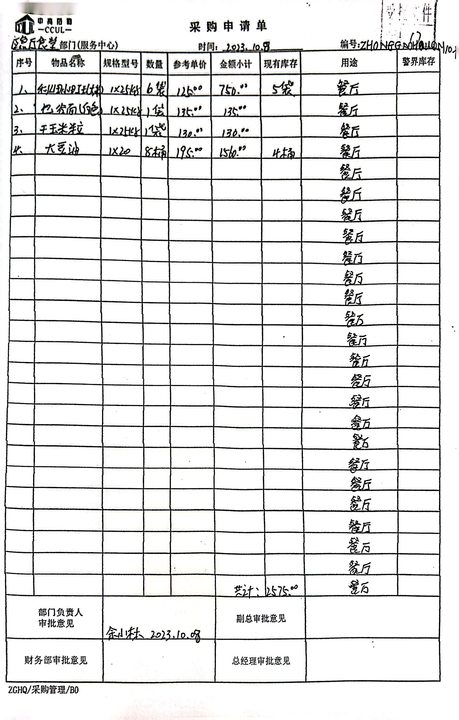 中商后勤
CCUL
采购申请单
受控文件
部门(服务中心) 时间: 2023.10.8 编号:
序号 物品名称 规格型号 数量 参考单价 金额小计 现有库存 用途 警界库存
1、 1×25kg 6袋 125.00 750.00 5袋 餐厅
2、 1×25kg 1袋 135.00 135.00 餐厅
3、 玉米粒 1×25kg 1袋 130.00 130.00 餐厅
4、 大豆油 1×20 8桶 195.00 1560.00 4桶 餐厅
餐厅
餐厅
餐厅
餐厅
餐厅
餐厅
餐厅
餐厅
餐厅
餐厅
餐厅
餐厅
餐厅
餐厅
餐厅
餐厅
餐厅
餐厅
餐厅
共计: 2575.00 餐厅
部门负责人
审批意见
2023.10.08
副总审批意见
财务部审批意见 总经理审批意见
ZGHQ/采购管理/B0